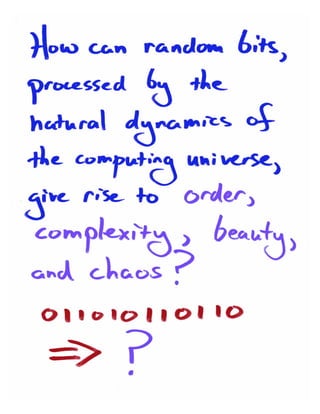 How can random bits,
processed by the
natural dynamics of
the computing universe,
give rise to order,
complexity, beauty,
and chaos?
011010110110
⇒ ?